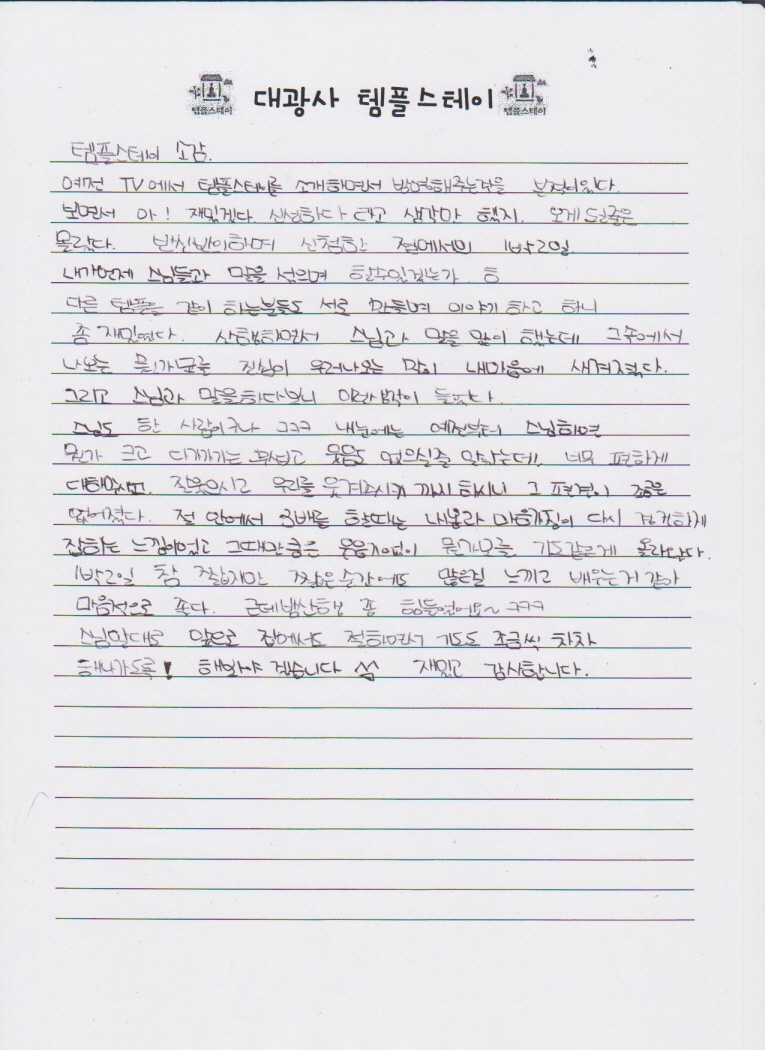 템플스테이 대광사 템플스테이 템플스테이
템플스테이 소감.
예전 TV에서 템플스테이를 소개하면서 방영해주는것을 본적이있다.
보면서 아! 재밌겠다. 신선하다 라고 생각만 했지. 오게 될줄은
몰랐다. 반신반의하며 신청한 절에서의 1박2일
내가언제 스님들과 말을 섞으며 할수있겠는가
다른 템플을 같이 하는분들도 서로 만들며 이야기 하고 하니
좀 재밌었다. 산행하면서 스님과 말을 많이 했는데 그속에서
나오는 뭔가모를 진심이 우러나오는 말이 내마음에 새겨졌다.
그리고 스님과 말을하다보니 이런생각이 들었다
스님도 한 사람이구나 ㅋㅋㅋ 내눈에는 예전부터 스님하면
뭔가 크고 다가가기 무섭고 웃음도 없으실줄 알았는데. 너무 편하게
대해주시고. 잘웃으시고 우리를 웃겨주시기 까지 하시니 그 편견이 조금은
없어졌다. 절 안에서 3배를 할때는 내몸과 마음가짐이 다시 경건하게
잡히는 느낌이었고 그때만큼은 웃음기없이 뭔가모를 기도같은게 올라왔다.
1박2일 참 짧지만 짧은순간에도 많은걸 느끼고 배우는거 같아
마음적으로 좋다. 근데 산행 좀 힘들었어요~ ㅋㅋㅋ
스님말대로 앞으로 집에서도 절하면서 기도도 조금씩 차차
해나가도록! 해봐야 겠습니다 재밌고 감사합니다.